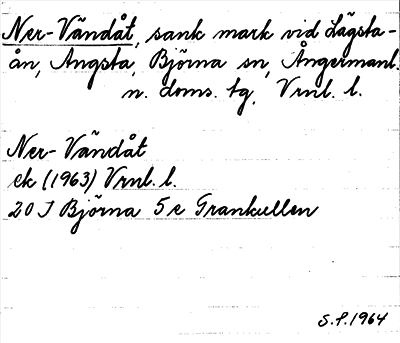 Ner-Vändåt, sank mark vid Lägsta-
ån, Angsta, Björna sn, Ångermanl.
n. doms. tg, Vrnl. l.
Ner-Vändåt
ek (1963) Vrnl. l.
20 J Björna 5e Grankullen
S.P. 1964